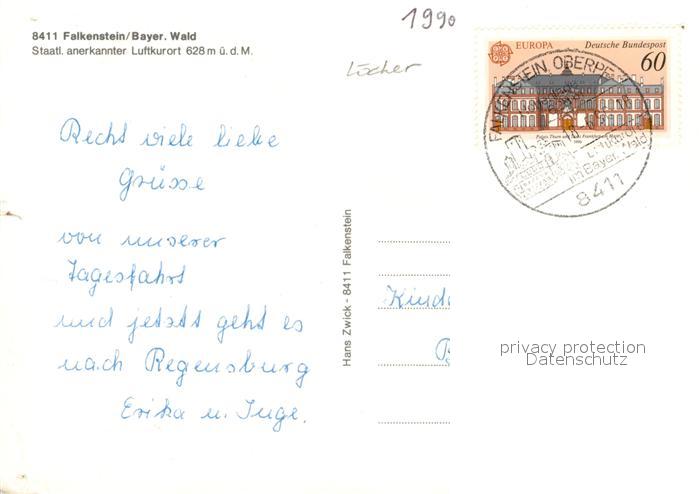 1990
8411 Falkenstein/Bayer. Wald
Staatl. anerkannter Luftkurort 628 m ü. d. M.
Löcher
EUROPA Deutsche Bundespost
60
FALKENSTEIN, OBERPF
Luftkurort
im Bayer. Wald
8411
Recht viele liebe
Grüsse
von unserer
Tagesfahrt
und jetzt geht es
nach Regensburg
Erika u. Inge.
Hans Zwick - 8411 Falkenstein
Kind
privacy protection
Datenschutz